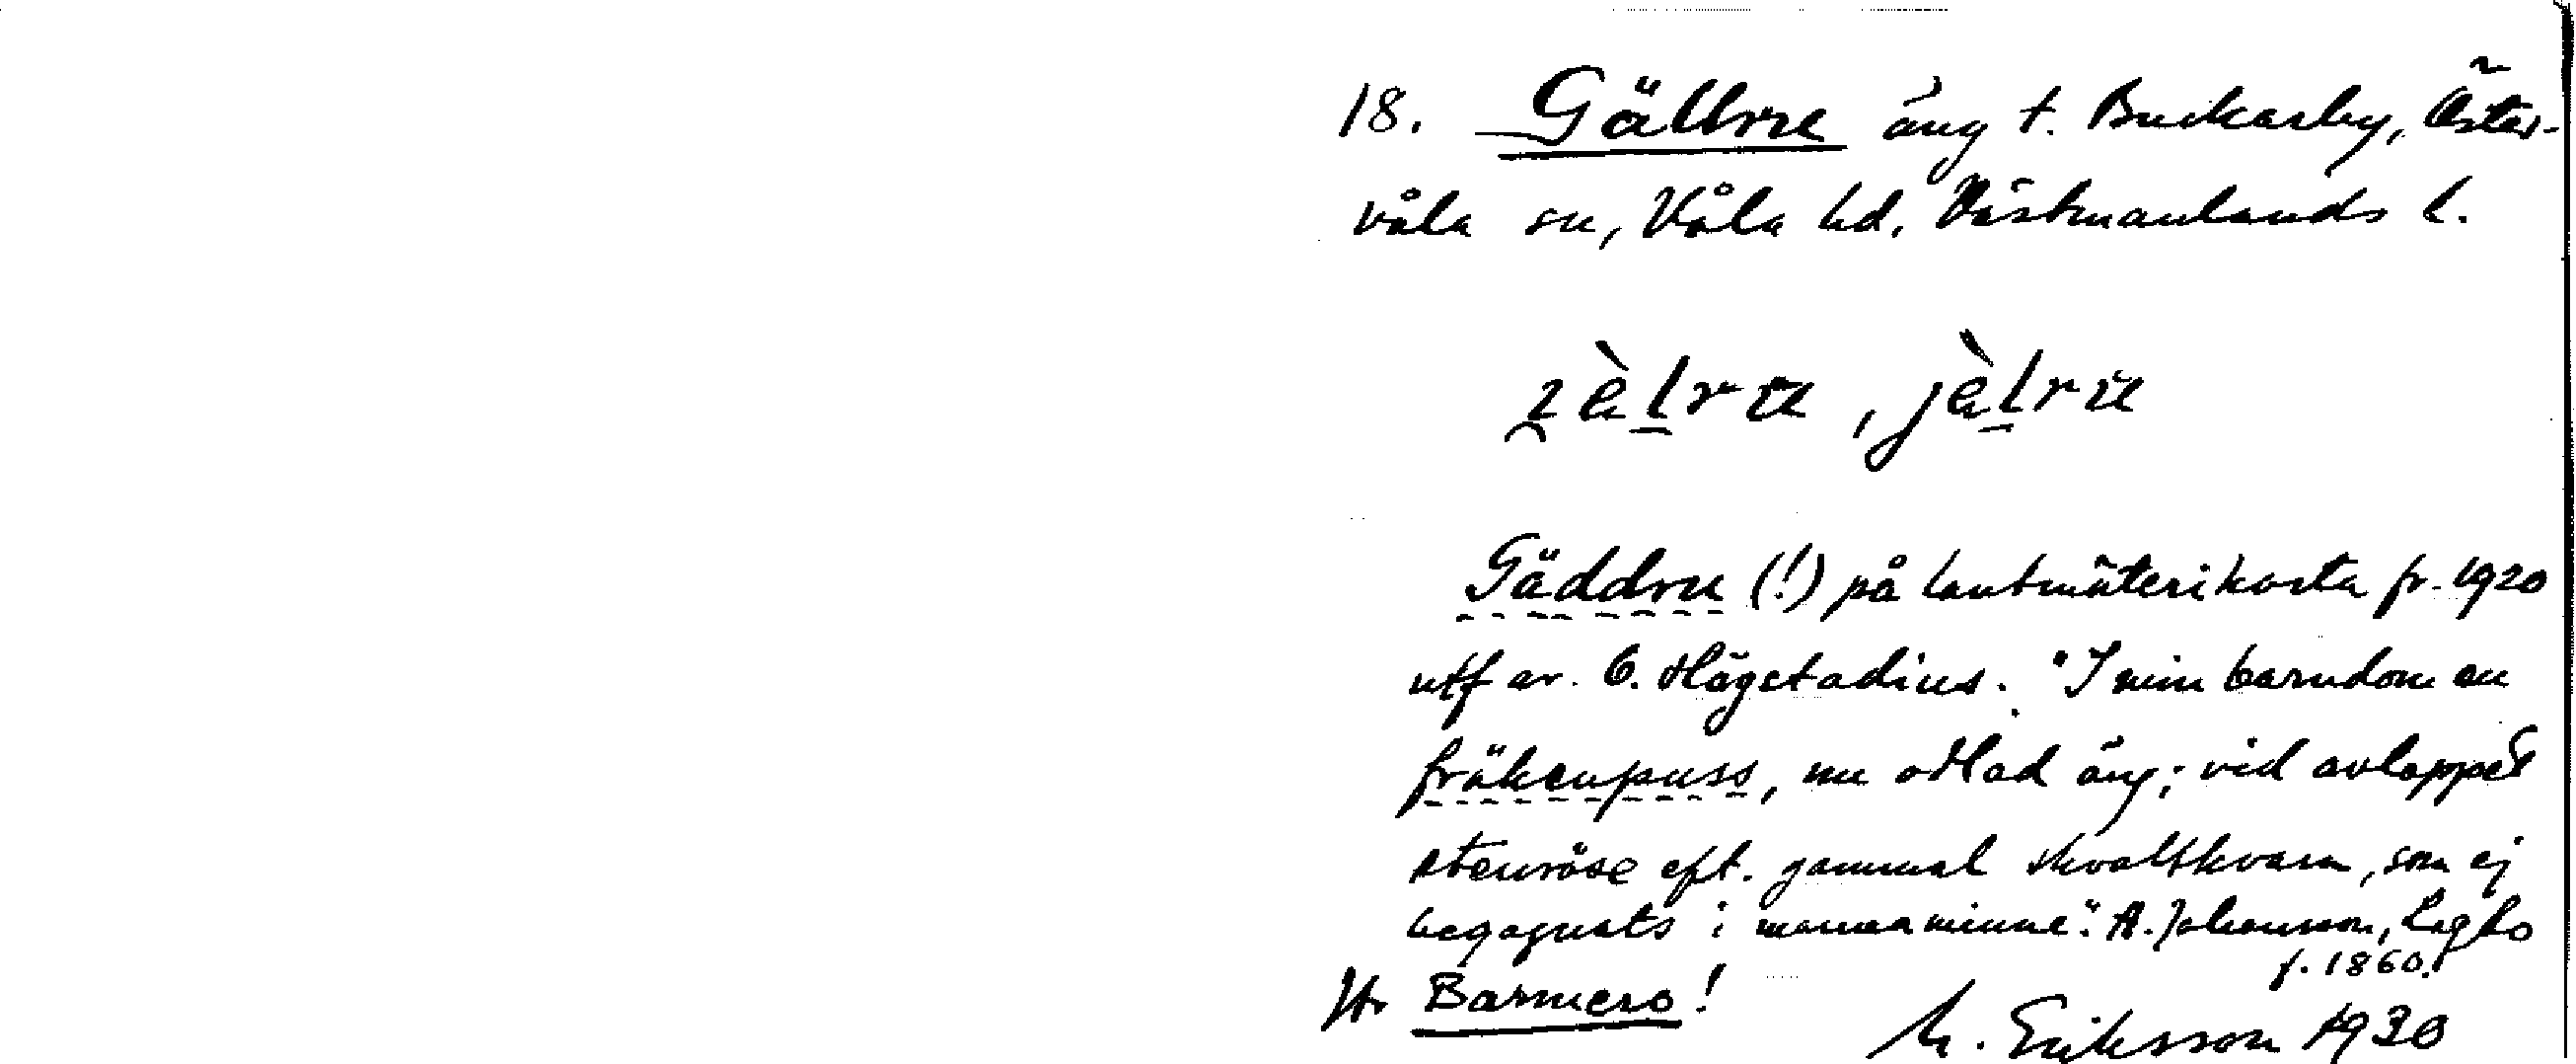 18. Gällrre äng t. Buckarby, Öster-
våla sn, Våla hd, Västmanlands l.
Gäddru (!) på lantmäterikarta fr. 1920
utf av. C. Hägstadius. "I min barndom en
fräkenpuss, nu odlad äng; vid avloppet
stenröse eft. gammal skvaltkvarn, som ej
begagnats i mannaminne". A. Johansson,
f. 1860.
Jfr Barmero!
M. Eriksson 1930